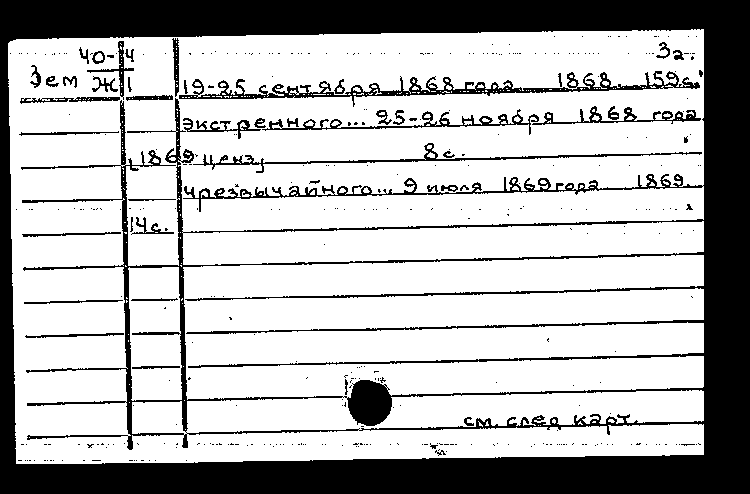 3а.
40-4
Зем Ж1
19-25 сентября 1868 года 1868. 159с.
экстренного... 25-26 ноября 1868 года
[1869 ценз] 8с.
чрезвычайного... 9 июля 1869 года 1869.
14с.
см. след карт.